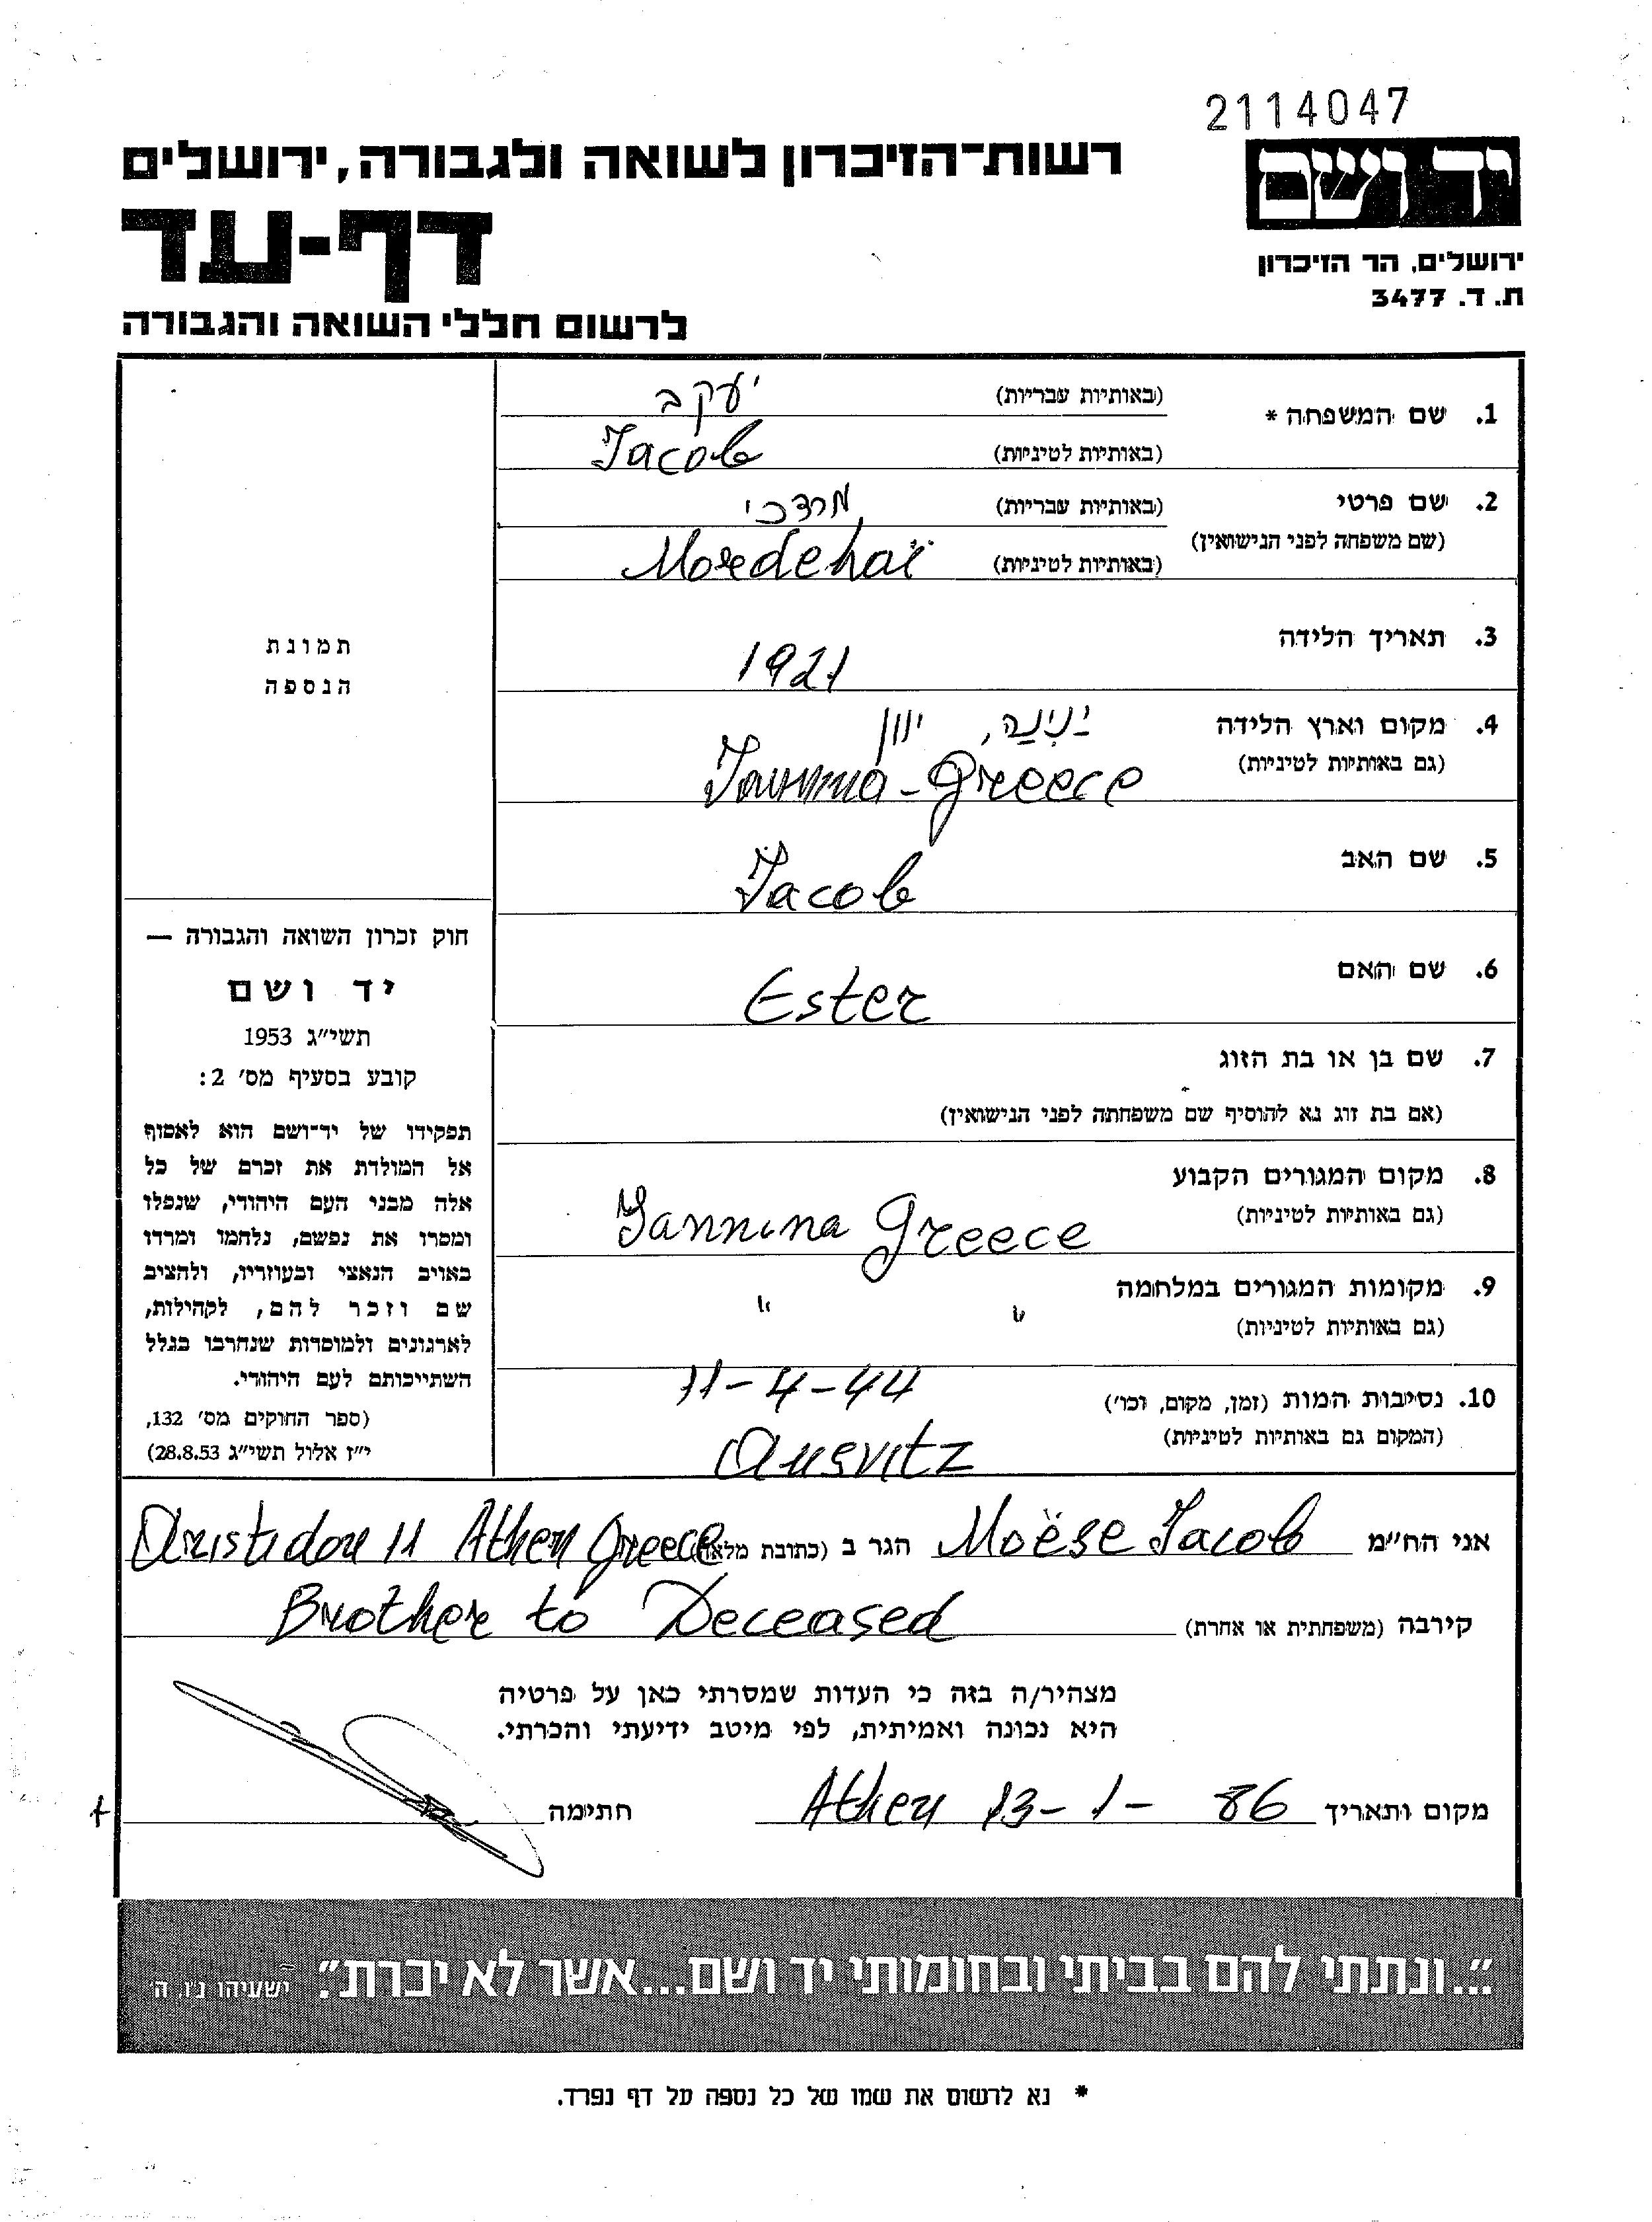 2114047
יד ושם
רשות־הזיכרון לשואה ולגבורה, ירושלים
דף-עד
ירושלים, הר הזיכרון
ת. ד. 3477
לרשום חללי השואה והגבורה
1. שם המשפחה * (באותיות עבריות) יעקב
(באותיות לטיניות) Jacob
2. שם פרטי (באותיות עבריות) מרדכי
(שם משפחה לפני הנישואין) (באותיות לטיניות) Mordehaï
3. תאריך הלידה 1921
4. מקום וארץ הלידה יַנִינַה, יוון
(גם באותיות לטיניות) Jannina - Greece
5. שם האב Jacob
6. שם האם Ester
7. שם בן או בת הזוג
(אם בת זוג נא להוסיף שם משפחתה לפני הנישואין)
8. מקום המגורים הקבוע
(גם באותיות לטיניות) Jannina Greece
9. מקומות המגורים במלחמה " "
(גם באותיות לטיניות)
10. נסיבות המות (זמן, מקום, וכו') 11-4-44
(המקום גם באותיות לטיניות) Ausvitz
תמונת
הנספה
חוק זכרון השואה והגבורה —
יד ושם
תשי"ג 1953
קובע בסעיף מס' 2:
תפקידו של יד־ושם הוא לאסוף
אל המולדת את זכרם של כל
אלה מבני העם היהודי, שנפלו
ומסרו את נפשם, נלחמו ומרדו
באויב הנאצי ובעוזריו, ולהציב
שם וזכר להם, לקהילות,
לארגונים ולמוסדות שנחרבו בגלל
השתייכותם לעם היהודי.
(ספר החוקים מס' 132,
י"ז אלול תשי"ג 28.8.53)
אני הח"מ Moëse Jacob הגר ב (כתובת מלאה) Aristidou 11 Athen Greece
קירבה (משפחתית או אחרת) Brother to Deceased
מצהיר/ה בזה כי העדות שמסרתי כאן על פרטיה
היא נכונה ואמיתית, לפי מיטב ידיעתי והכרתי.
מקום ותאריך Athen 13-1-86 חתימה
"...ונתתי להם בביתי ובחומותי יד ושם...אשר לא יכרת." ישעיהו נ"ו, ה'
* נא לרשום את שמו של כל נספה על דף נפרד.